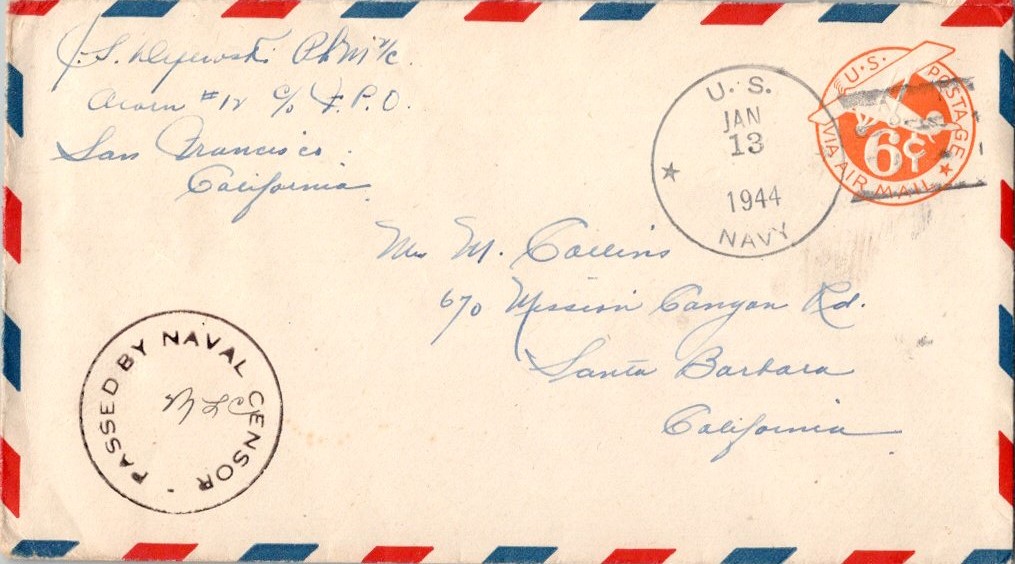 J. S. PhM 2/c.
Acorn #12 c/o F. P. O.
San Francisco.
California
U. S.
JAN
13
1944
NAVY
U.S. POSTAGE
6¢
VIA AIR MAIL
Mrs M. Collins
670 Mission Canyon Rd.
Santa Barbara
California
PASSED BY NAVAL CENSOR